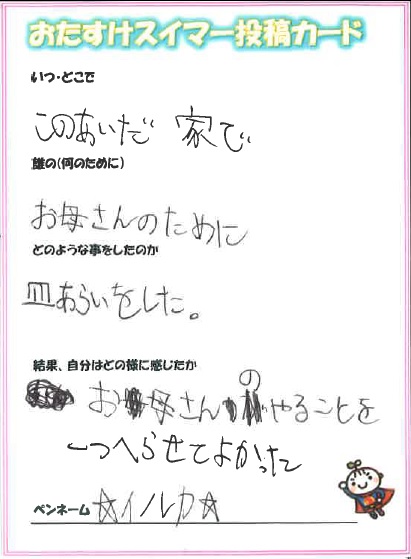 おたすけスイマー投稿カード
いつ・どこで
このあいだ 家で
誰の(何のために)
お母さんのために
どのような事をしたのか
皿あらいをした。
結果、自分はどの様に感じたか
お母さんのやることを
一つへらせてよかった
ペンネーム ☆イルカ☆